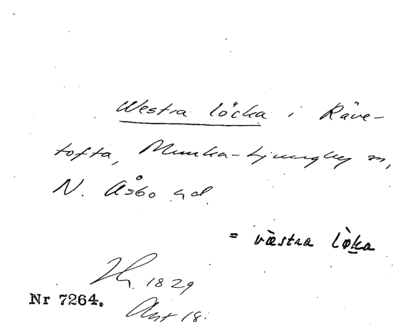 Westra löcka i Räve-
tofta, Munka-Ljungby sn,
N. Åsbo hd.
= västra lo̊ka
1829
Nr 7264.
Akt 18.